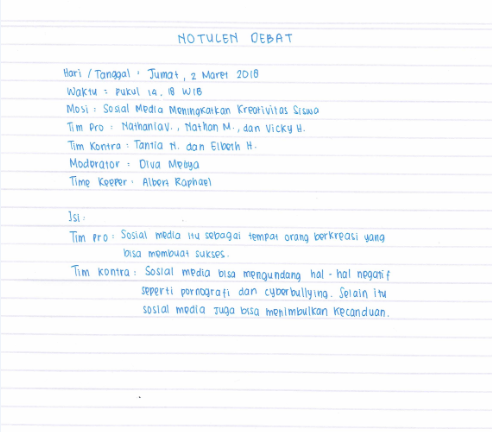 NOTULEN DEBAT
Hari / Tanggal : Jumat, 2 Maret 2018
Waktu : Pukul 14.18 WIB
Mosi : Sosial Media Meningkatkan Kreativitas Siswa
Tim Pro : Nathania V., Nathan M., dan Vicky H.
Tim Kontra : Tantia N. dan Elberth H.
Moderator : Diva Meisya
Time Keeper : Albert Raphael
Isi :
Tim pro : Sosial media itu sebagai tempat orang berkreasi yang
bisa membuat sukses.
Tim kontra : Sosial media bisa mengundang hal - hal negatif
seperti pornografi dan cyberbullying. Selain itu
sosial media juga bisa menimbulkan kecanduan.